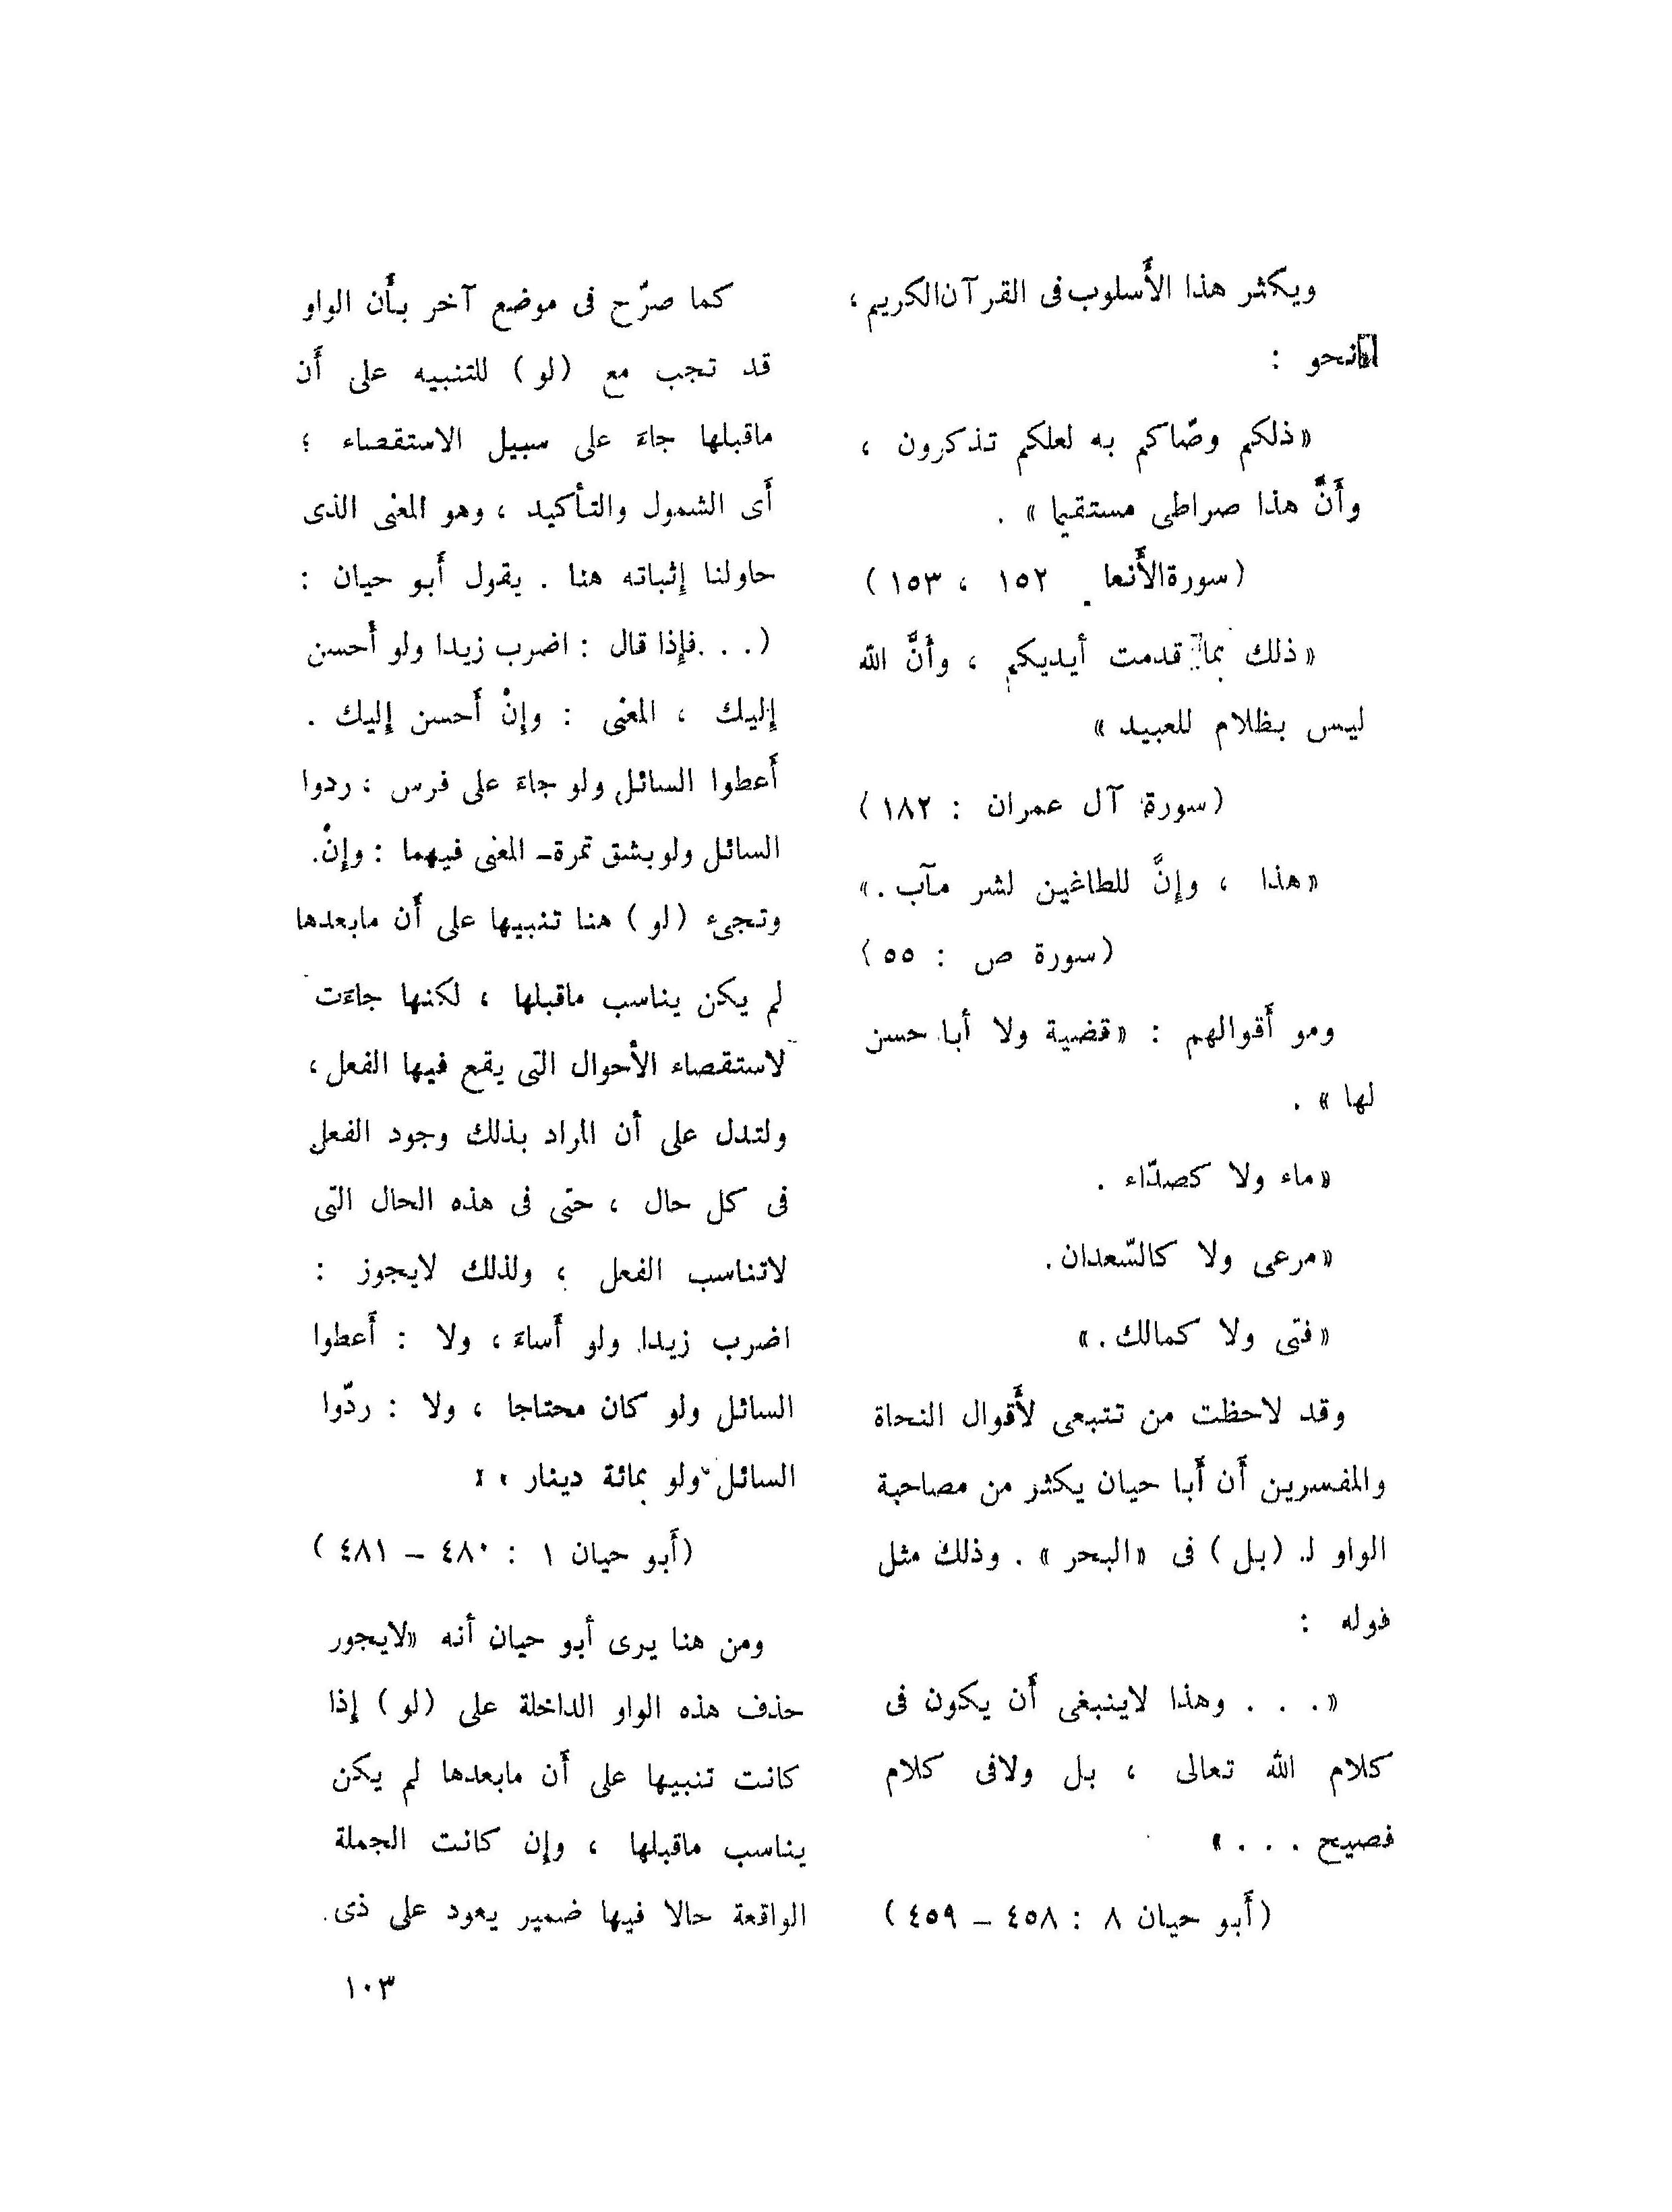 ويكثر هذا الأَسلوب فى القرآن الكريم ،
نحو :
«ذلكم وصّاكم به لعلكم تذكرون ،
وأَنَّ هذا صراطى مستقيما » .
(سورة الأَنعا . ١٥٢ ، ١٥٣)
«ذلك بما قدمت أيديكم ، وأَنَّ الله
ليس بظلام للعبيد »
(سورة آل عمران : ١٨٢)
«هذا ، وإنَّ للطاغين لشر مآب .»
(سورة ص : ٥٥)
ومو أَقوالهم : «قضية ولا أبا حسن
لها » .
«ماء ولا كصدّاء .
«مرعى ولا كالسّعدان .
«فتى ولا كمالك .»
وقد لاحظت من تتبعى لأَقوال النحاة
والمفسرين أَن أَبا حيان يكثر من مصاحبة
الواو لـ (بل) فى «البحر » . وذلك مثل
قوله :
«. . . وهذا لاينبغى أَن يكون فى
كلام الله تعالى ، بل ولافى كلام
فصيح . . . »
(أَبو حيان ٨ : ٤٥٨ – ٤٥٩)
كما صرّح فى موضع آخر بأَن الواو
قد تجب مع (لو) للتنبيه على أَن
ماقبلها جاءَ على سبيل الاستقصاء ؛
أَى الشمول والتأكيد ، وهو المعنى الذى
حاولنا إثباته هنا . يقول أَبو حيان :
(. . .فإذا قال : اضرب زيدا ولو أَحسن
إليك ، المعنى : وإنْ أَحسن إليك .
أَعطوا السائل ولو جاءَ على فرس ، ردوا
السائل ولو بشق تمرة– المعنى فيهما : وإنْ.
وتجىء (لو) هنا تنبيها على أَن مابعدها
لم يكن يناسب ماقبلها ، لكنها جاءَت
لاستقصاء الأحوال التى يقع فيها الفعل ،
ولتدل على أن المراد بذلك وجود الفعل
فى كل حال ، حتى فى هذه الحال التى
لاتناسب الفعل ؛ ولذلك لايجوز :
اضرب زيدا ولو أَساءَ ، ولا : أَعطوا
السائل ولو كان محتاجا ، ولا : ردّوا
السائل ولو بمائة دينار » .
(أَبو حيان ١ : ٤٨٠ – ٤٨١)
ومن هنا يرى أبو حيان أنه «لايجور
حذف هذه الواو الداخلة على (لو) إذا
كانت تنبيها على أَن مابعدها لم يكن
يناسب ماقبلها ، وإن كانت الجملة
الواقعة حالا فيها ضمير يعود على ذى
١٠٣